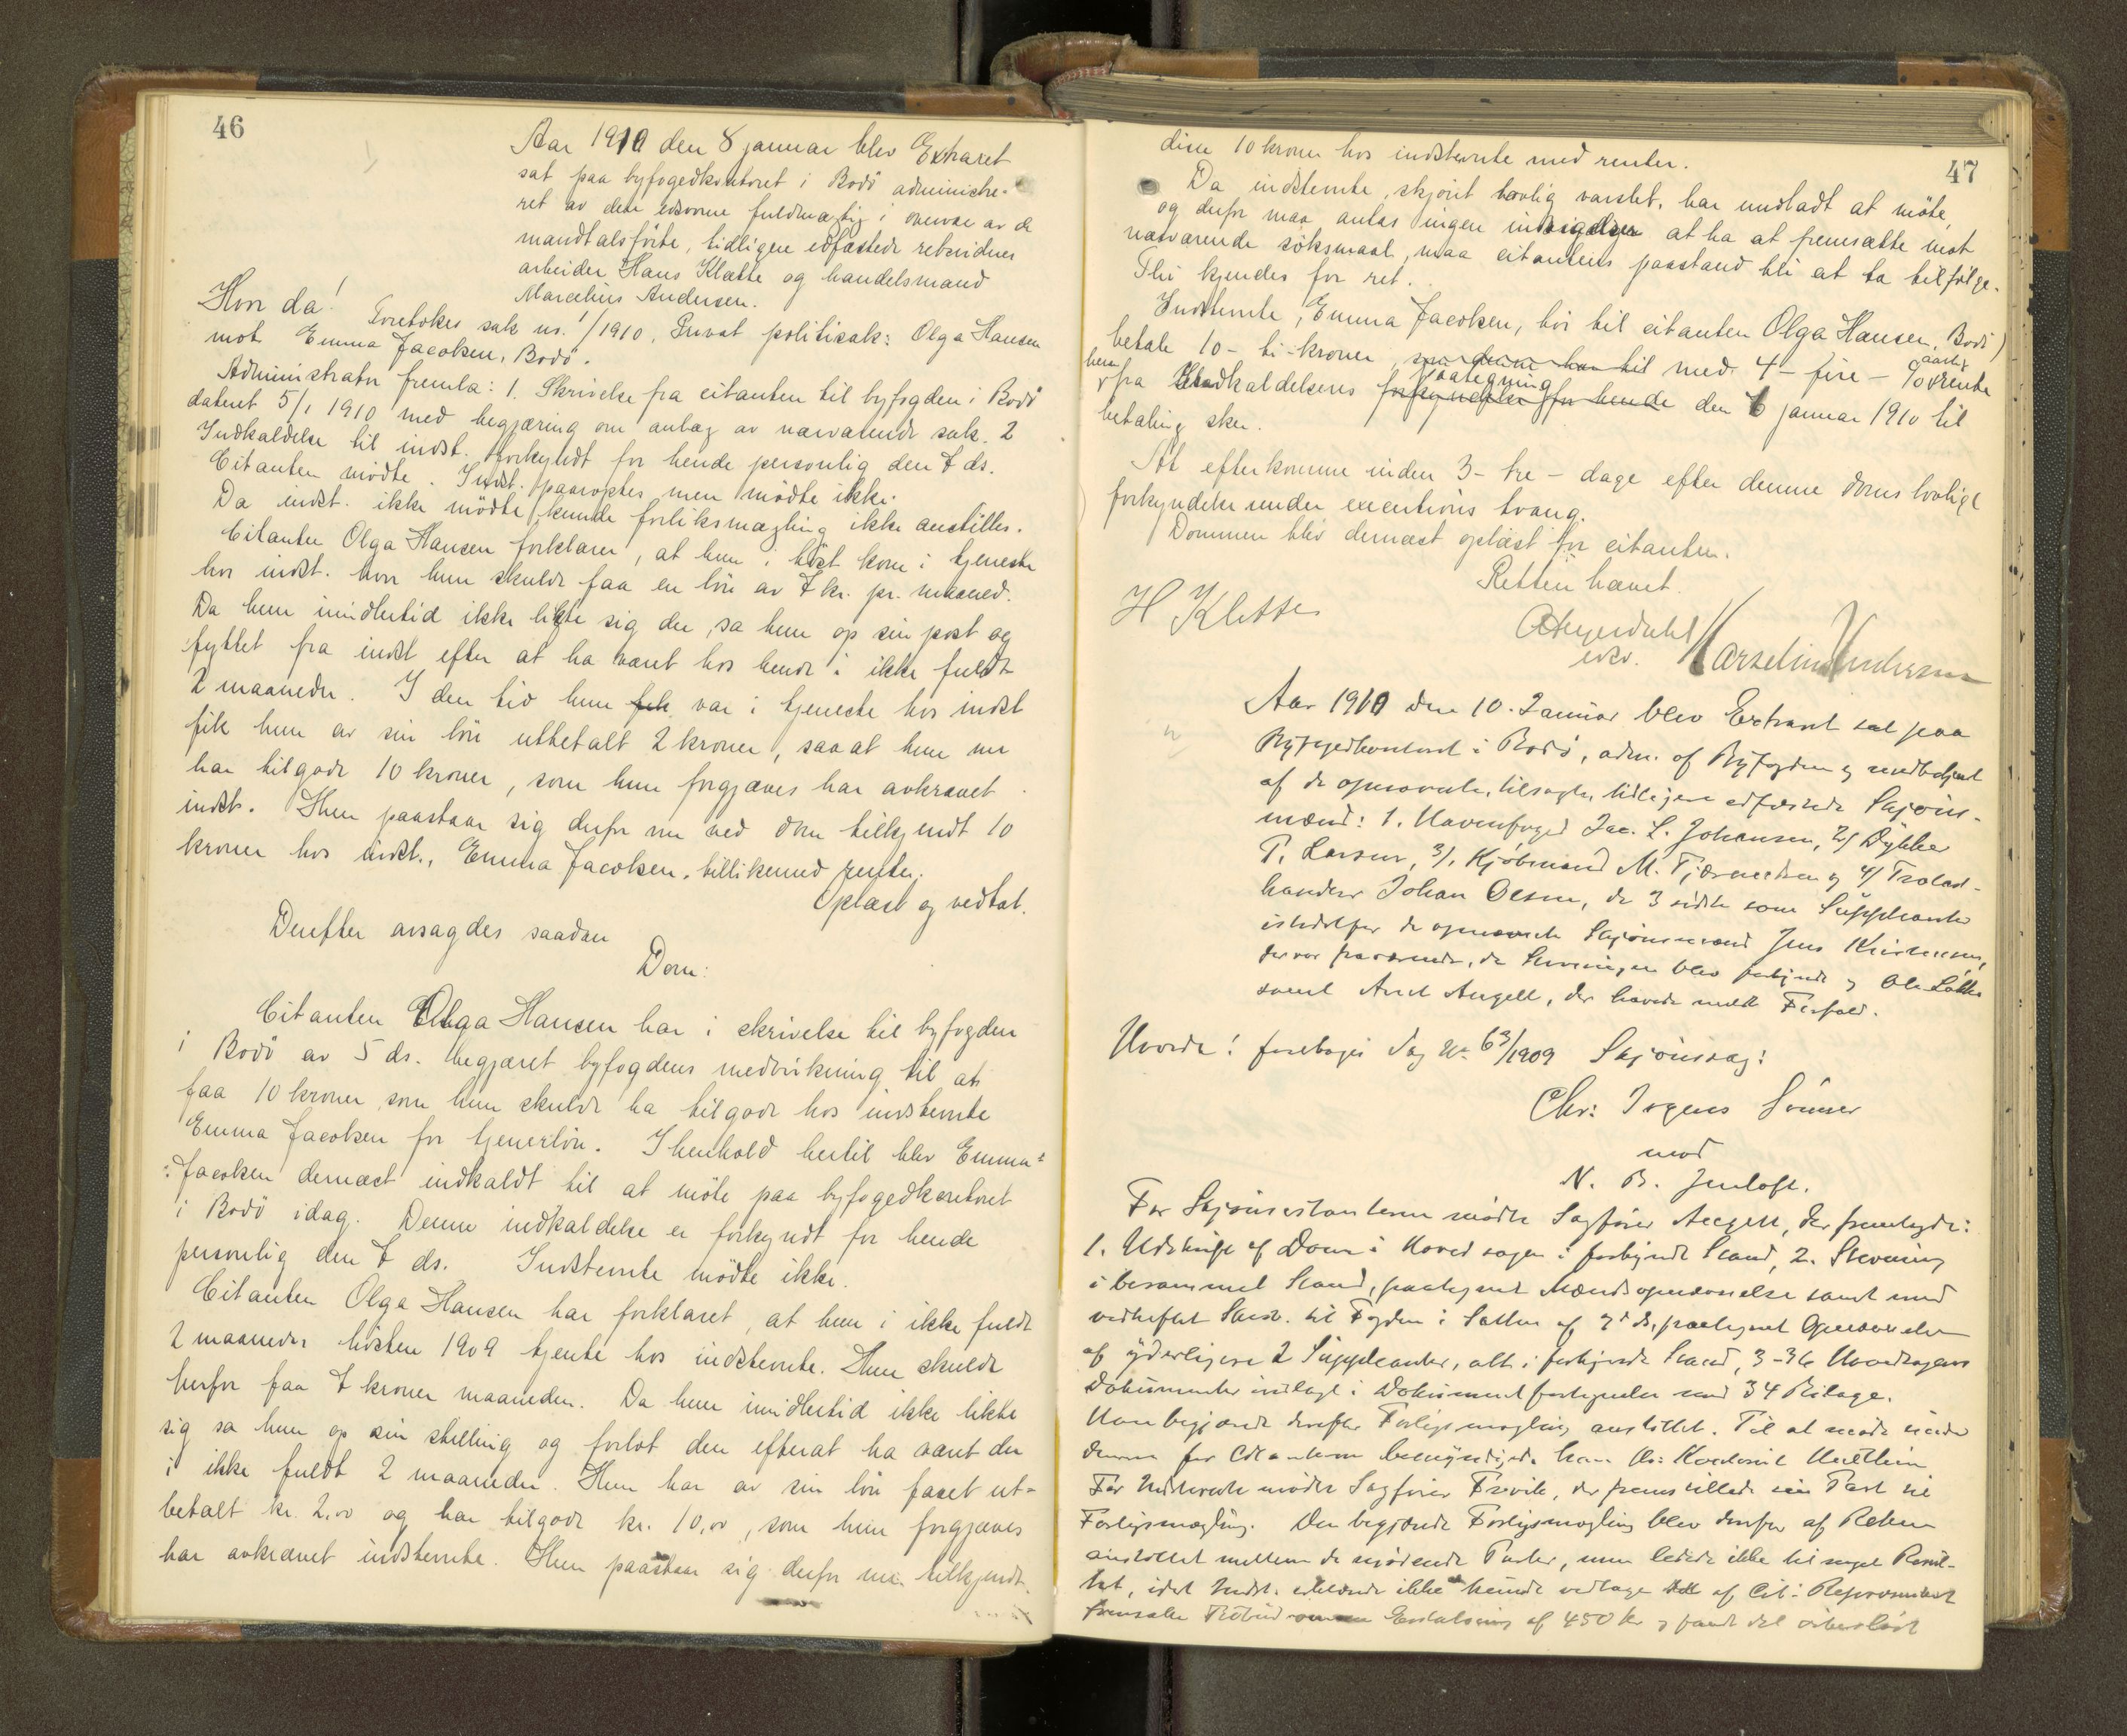 46
Aar 1910 den 8 januar blev Extraret
sat paa byfogedkontoret i Bodö administre-
ret av den edsvorne fuldmægtig i overvær av de
mandtalsförte, tidligere edfæstede retsvidner
arbeider Hans Klætte og handelsmand
Marcelius Andersen.
Hvor da!
Foretokes sak nr. 1/1910, Privat politisak: Olga Hansen
mot Emma Jacobsen, Bodö.
Administrator fremla: 1. Skrivelse fra citanten til byfogden i Bodö
dateret 5/1 1910 med begjæring om anlæg av nærværende sak. 2
Indkaldelse til indst. forkyndt for hende personlig den 7 ds.
Citanten mödte. Indst. paaroptes men mödte ikke.
Da indst. ikke mödte kunde forliksmægling ikke anstilles.
Citanten Olga Hansen forklarer, at hun i höst kom i tjeneste
hos indst. hvor hun skulde faa en lön av 7 kr. pr. maaned.
Da hun imidlertid ikke likte sig der, sa hun op sin post og
flyttet fra indst efter at ha været hos hende i ikke fuldt
2 maaneder. I den tid hun fik var i tjeneste hos indst
fik hun av sin lön utbetalt 2 kroner, saaat hun nu
har tilgode 10 kroner, som hun forgjæves har avkrævet
indst. Hun paastaar sig derfor nu ved dom tilkjendt 10
kroner hos indst., Emma Jacobsen, tillikemed renter.
Oplæst og vedtat.
Derefter avsagdes saadan
Dom:
Citanten Olga Hansen har i skrivelse til byfogden
i Bodö av 5 ds. begjæret byfogdens medvirkning til at
faa 10 kroner, som hun skulde ha tilgode hos indstevnte
Emma Jacobsen for tjenerlön. I henhold hertil blev Emma
Jacobsen dernæst indkaldt til at möte paa byfogedkontoret
i Bodö idag. Denne indkaldelse er forkyndt for hende
personlig den 7 ds. Indstevnte mödte ikke.
Citanten Olga Hansen har forklaret, at hun i ikke fuldt
2 maaneder hösten 1909 tjente hos indstevnte. Hun skulde
herfor faa 7 kroner maaneden. Da hun imidlertid ikke likte
sig sa hun op sin stilling og forlot den efterat ha været der
i ikke fuldt 2 maaneder. Hun har av sin lön faaet ut-
betalt kr. 2,00 og har tilgode kr. 10,00, som hun forgjæves
har avkrævet indstevnte. Hun paastaar sig derfor nu tilkjendt
47
disse 10 kroner hos indstevnte med renter.
Da indstevnte, skjönt lovlig varslet, har undladt at möte,
og derfor maa antas ingen indsigelser at ha at fremsætte mot
nærværende söksmaal, maa citantens paastand bli at ta tilfölge.
Thi kjendes for ret.
Indstevnte, Emma Jacobsen, bör til citanten Olga Hansen, Bodö
betale 10 - ti - kroner, med 4 - fire - % aarlig rente
herav fra indkaldelsens paategning forkyndelse for hende den 6 januar 1910 til
betaling sker.
At efterkomme inden 3 - tre - dage efter denne doms lovlige
forkyndelse under executions tvang.
Dommen blev dernæst oplæst for citanten.
Retten hævet.
H Klette
edsv.
Marselius Andersen
Aar 1910 den 10. Januar blev Extraret sat paa
Byfogedkontoret i Bodö, adm. af Byfogden og medbetjent
af de opnævnte, tilsagte, tidligere edfæstede Skjöns-
mænd: 1. Havnefoged Jac. L. Johansen, 2/ Dykker
P. Larsen, 3/ Kjöbmand M. Tjærnedsen og 4/ Trælast-
handler Johan Olsen, de 3 sidste som Suppleanter
istedetfor de opnævnte Skjönsmænd Jens Kristensen,
der var fraværende, da Stevningen blev forkyndt og Ole Løkke
samt Arnt Angell, der havde meldt Forfald.
Hvorda! foretoges Sag No 63/1909 Skjönssag:
Chr: Jogens Sönner
mod
N. B. Jenloft.
For Skjönscitanterne mödte Sagförer Angell, der fremlagde:
1. Udskrift af Dom i Hovedsagen i forkyndt Stand, 2. Stevning
i berammet Stand, paategnet Mændsopnævnelse samt med
vedheftet Skriv. til Fogden i Salten af 7 ds, paategnet Opnævnelse
af yderligere 2 Suppleanter, alt i forkyndt Stand, 3-36 Hovedsagens
Dokumenter indlagt i Dokumentfortegnelse med 34 Bilage.
Han begjærede derefter Forligsmægling anstillet. Til at möde under
denne for Citanterne bemyndigede han
For Indstevnte mödte Sagförer Frivik, der fremstillede sin Part til
Forligsmægling. Den begjærede Forligsmægling blev derfor af Retten
anstillet mellem de mödende Parter, men ledede ikke til noget Resul-
tat, idet Indst. erklærede ikke kunde vedtage det af Cit: Repræsentant
fremsatte Tilbud om en Erstatning af 450 Kr og fandt det